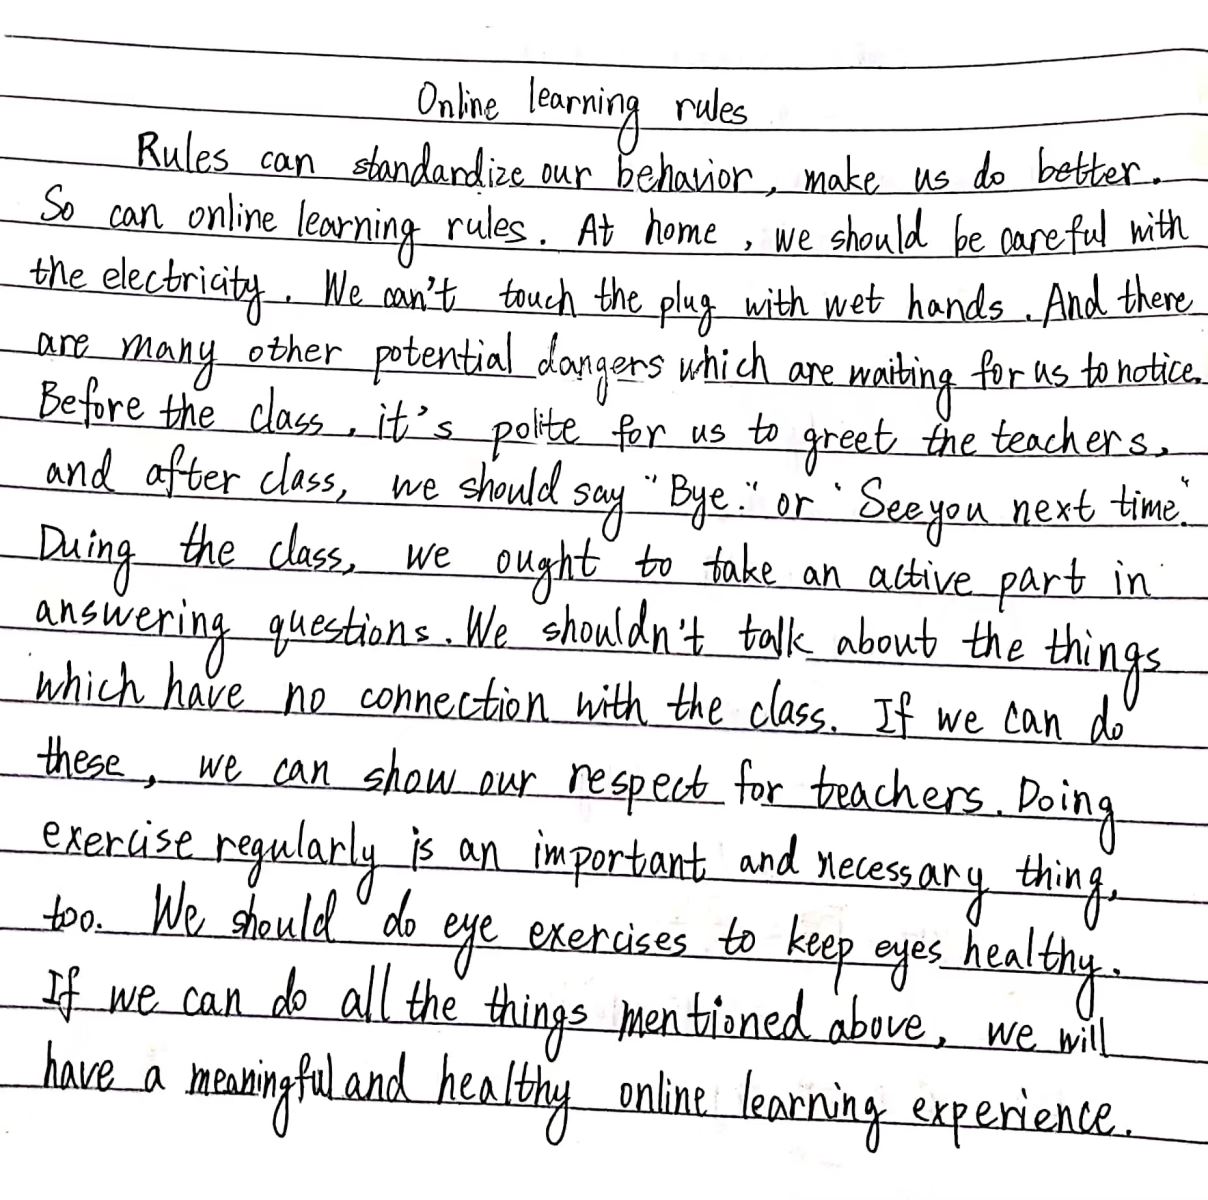 Online learning rules
Rules can standardize our behavior, make us do better.
So can online learning rules. At home, we should be careful with
the electricity. We can't touch the plug with wet hands. And there
are many other potential dangers which are waiting for us to notice.
Before the class, it's polite for us to greet the teachers,
and after class, we should say "Bye." or "See you next time."
Duing the class, we ought to take an active part in
answering questions. We shouldn't talk about the things
which have no connection with the class. If we can do
these, we can show our respect for teachers. Doing
exercise regularly is an important and necessary thing,
too. We should do eye exercises to keep eyes healthy.
If we can do all the things mentioned above, we will
have a meaningful and healthy online learning experience.